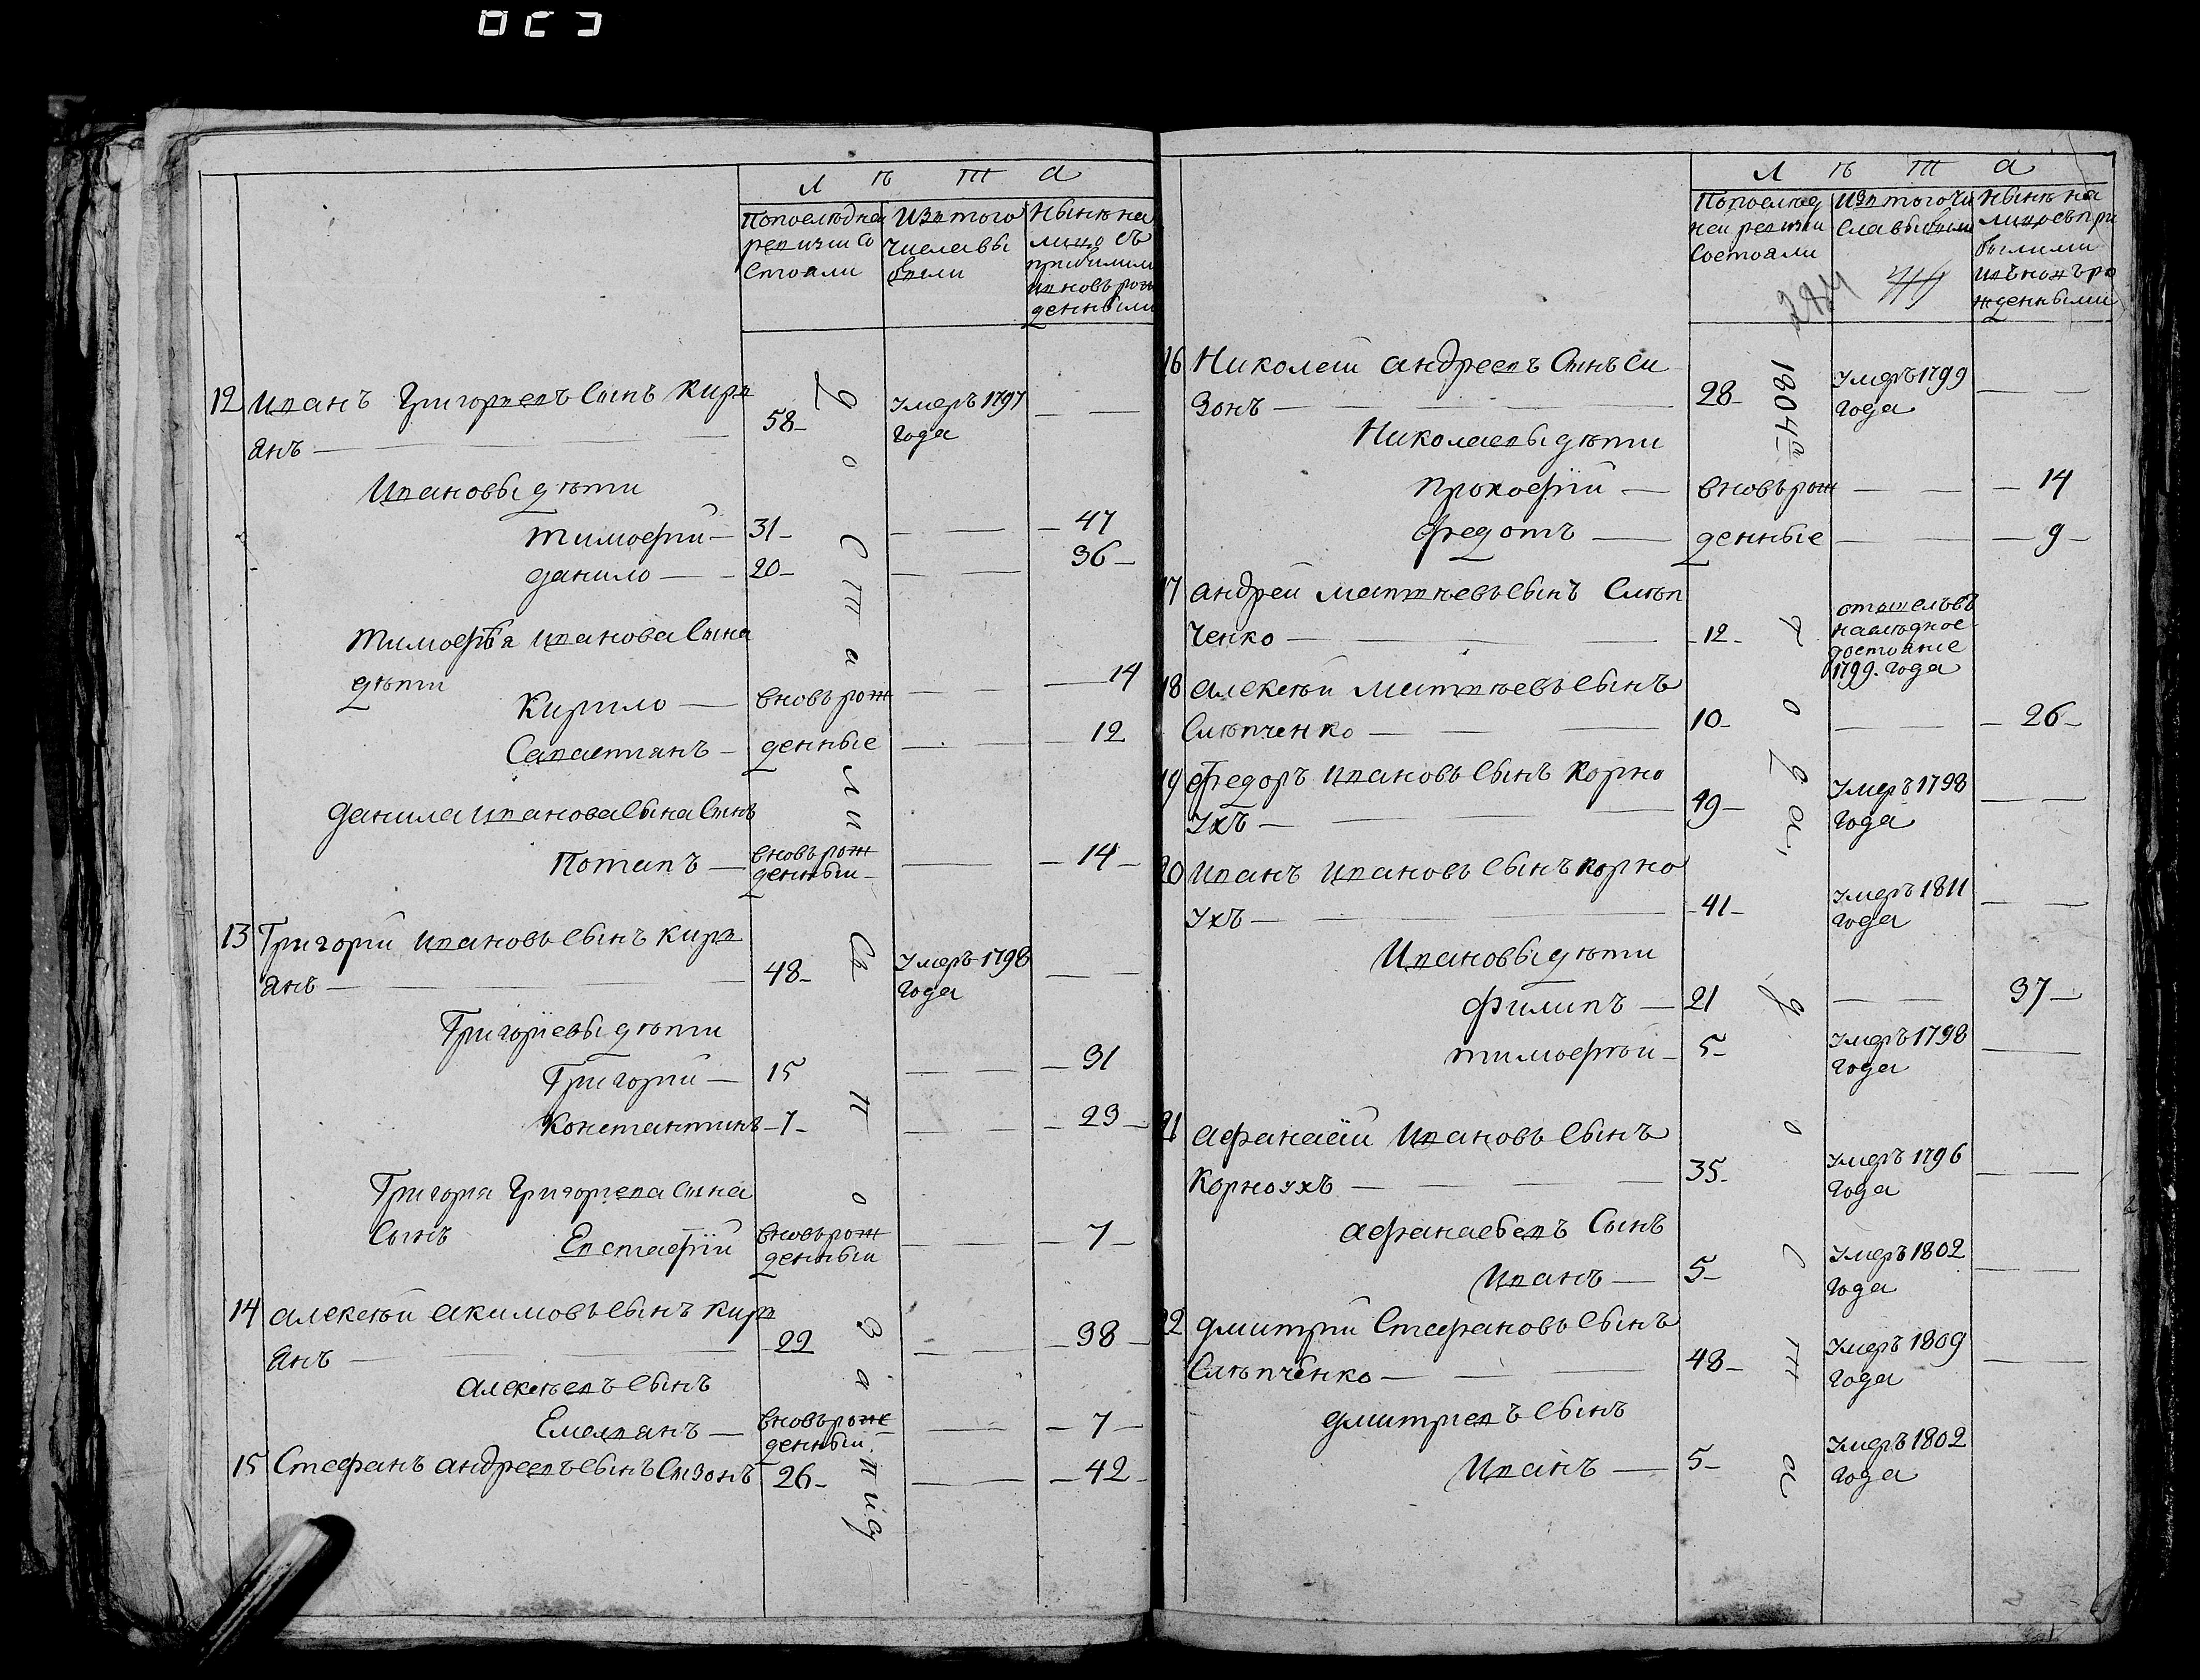 Л ѣ т а
Попослѣдней
ревизии со
стояли
Изътого
числавы
были
Нынѣ на
лицо съ
прибылыми
ивновьрож
денными
12 Иванъ Григорьевъ сынъ Кирв
анъ — 58 — Умеръ 1797
года
Ивановы дѣти
тимофѣй — 31 — 47
данило — 20 — 36
тимофѣя иванова сына
дѣти
Кирило — вновь рож — 14
Савастиянъ — денные — 12
данила иванова сына сынъ
Потапъ — вновь рож
денныи — 14
13 Григорий ивановъ сынъ Кирв
янъ — 48 — Умеръ 1798
года
Григориевы дѣти
Григорий — 15 — 31
Константинъ — 7 — 23
Григория Григориева сына
сынъ Евстафий вновьрож
денныи — 7
14 алексѣй акимовъ сынъ Кирв
янъ — 22 — 38
алексѣевъ сынъ
Емельянъ — вновьрож
денный — 7
15 Стефанъ андреевъ сынъ Сизонъ 26 — 42
Л ѣ т а
Попослѣд
неи ревизии
состояли
Изътогочи
славыбыли
Нынѣ на
лицосъпри
былыми
ивъновъро
жденными
284
16 Николай андреевъ сынъ Си
зонъ — 28 — Умеръ 1799
года
Николаевы дѣти
Прокофий — вновьрож — 14
Федотъ — денные — 9
17 андрей матвѣевъ сынъ Слѣп
ченко — 12 — отошелъ въ
наслѣдное
достояние
1799. года
18 алексѣй Матвѣевъ сынъ
Слѣпченко — 10 — 26
19 Федоръ ивановъ сынъ Корно
ухъ — 49 — Умеръ 1798
года
20 Иванъ Ивановъ сынъ Корно
ухъ — 41 — Умеръ 1811
года
Ивановы дѣти
Филипъ — 21 — 37
тимофѣй — 5 — Умеръ 1798
года
21 афанасий Ивановъ сынъ
Корноухъ — 35 — Умеръ 1796
года
афанасьевъ сынъ
Иванъ — 5 — Умеръ 1802
года
22 дмитрий Стефановъ сынъ
Слѣпченко — 48 — Умеръ 1809
года
дмитриевъ сынъ
Иванъ — 5 — Умеръ 1802
года